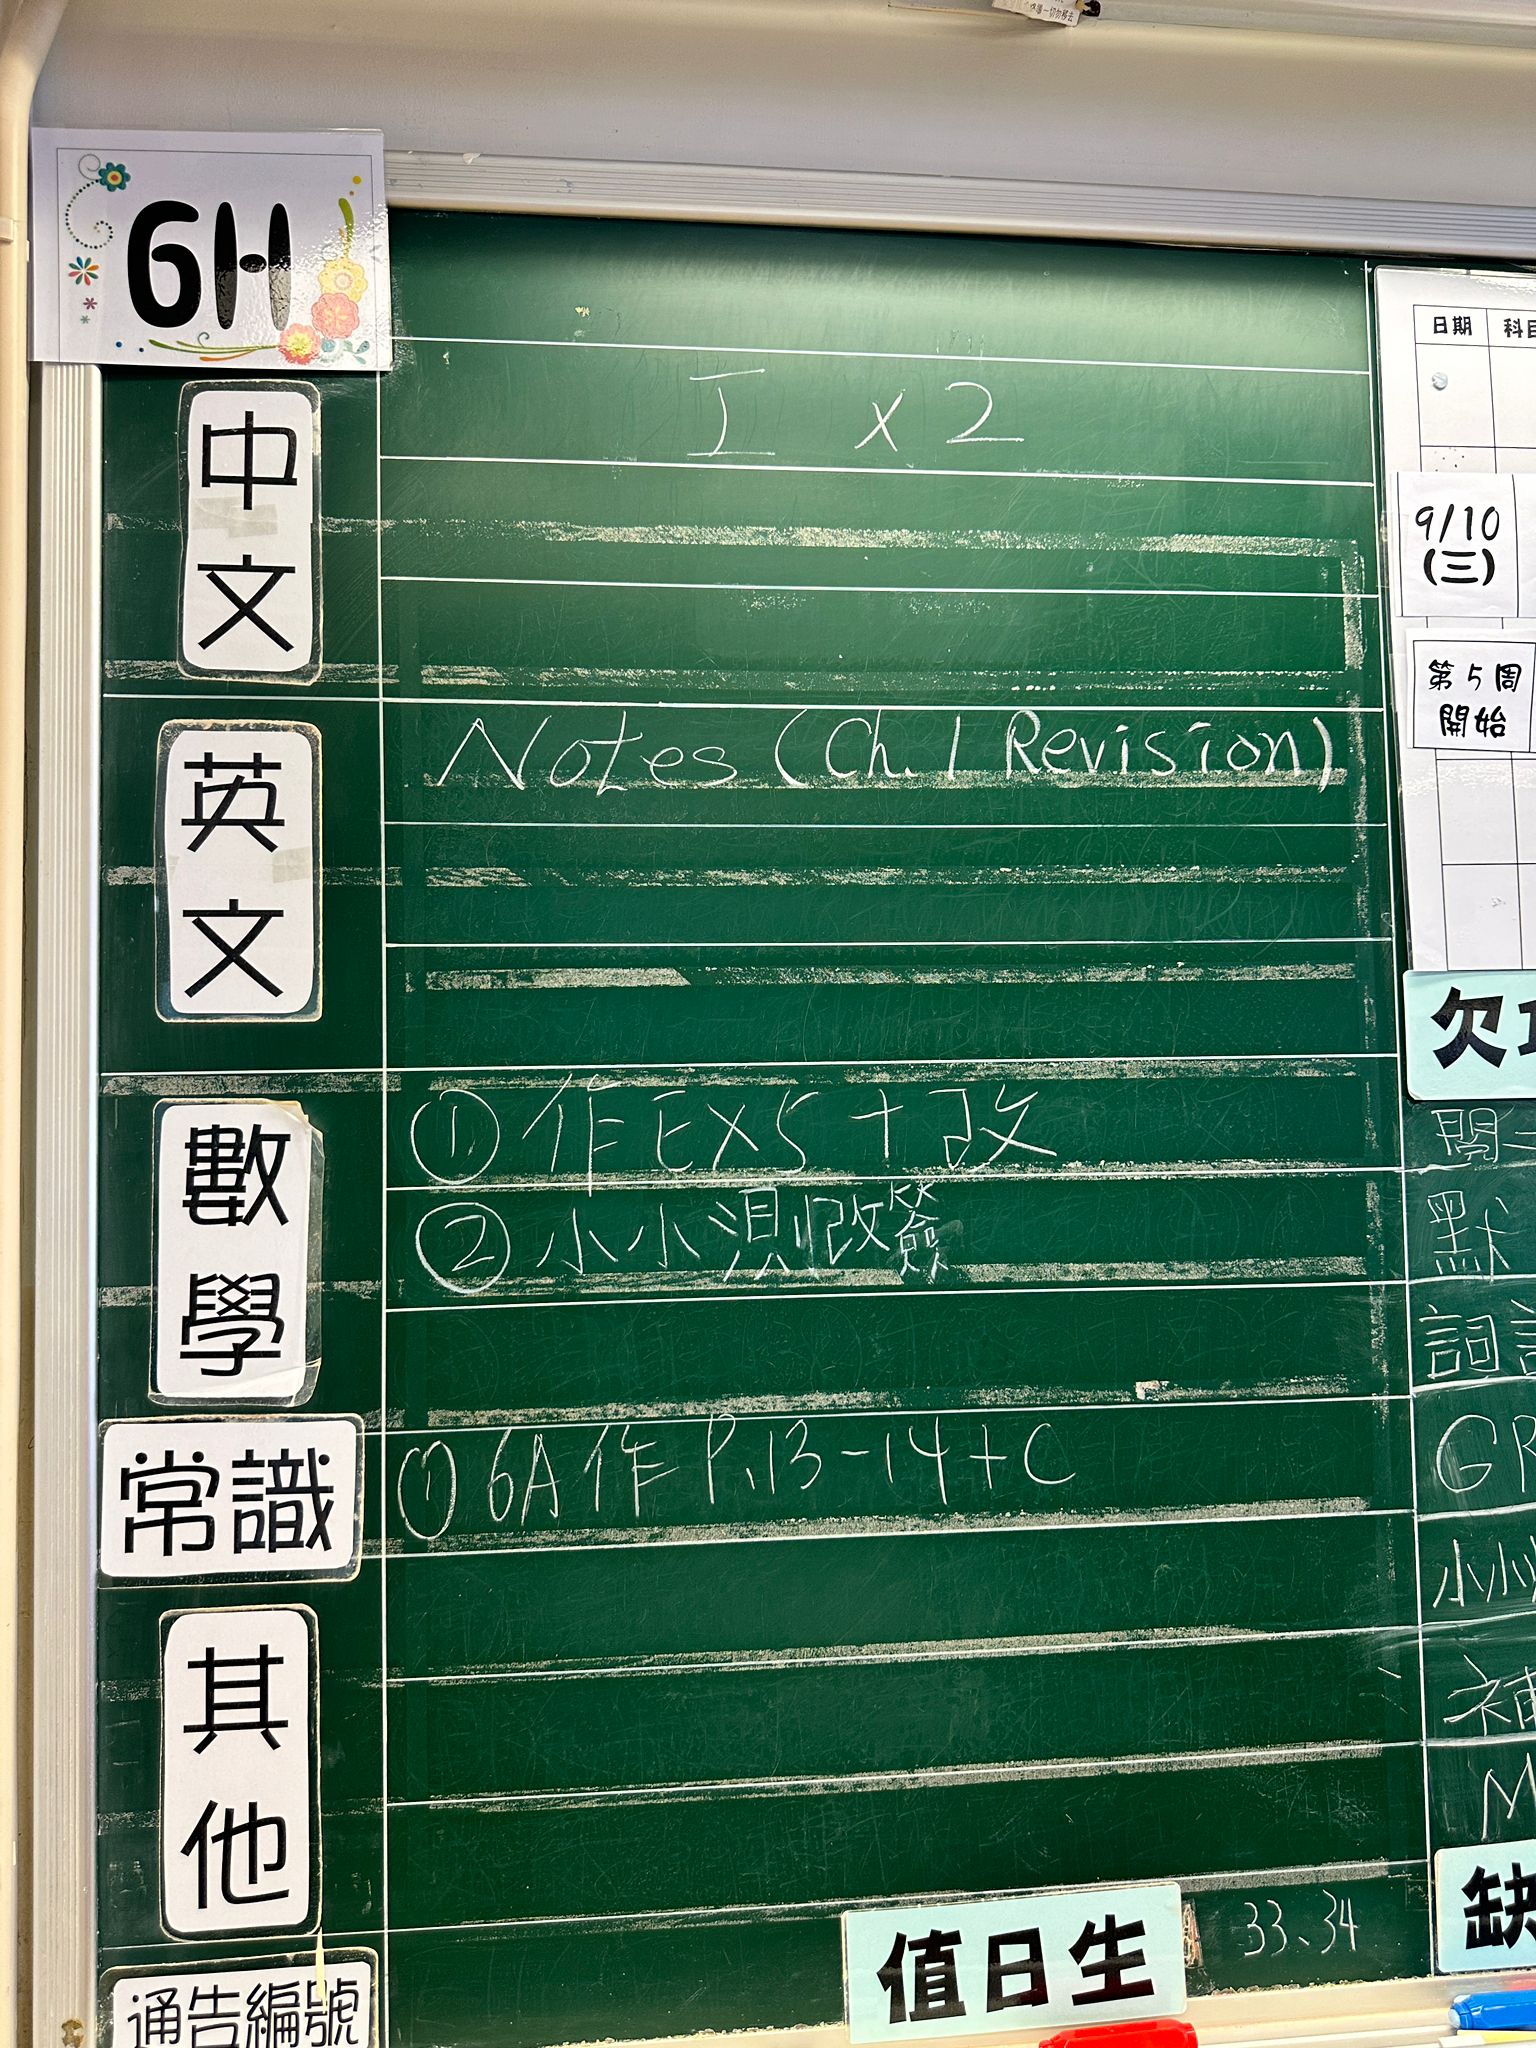 6H
中文
工 x 2
英文
Notes (Ch. 1 Revision)
數學
① 作 EX5 + 改
② 小小測改簽
常識
① 6A 作 P.13-14 + C
其他
通告編號
值日生
33、34
日期
9/10
(三)
第5周
開始
欠
默
詞
小小
補
M